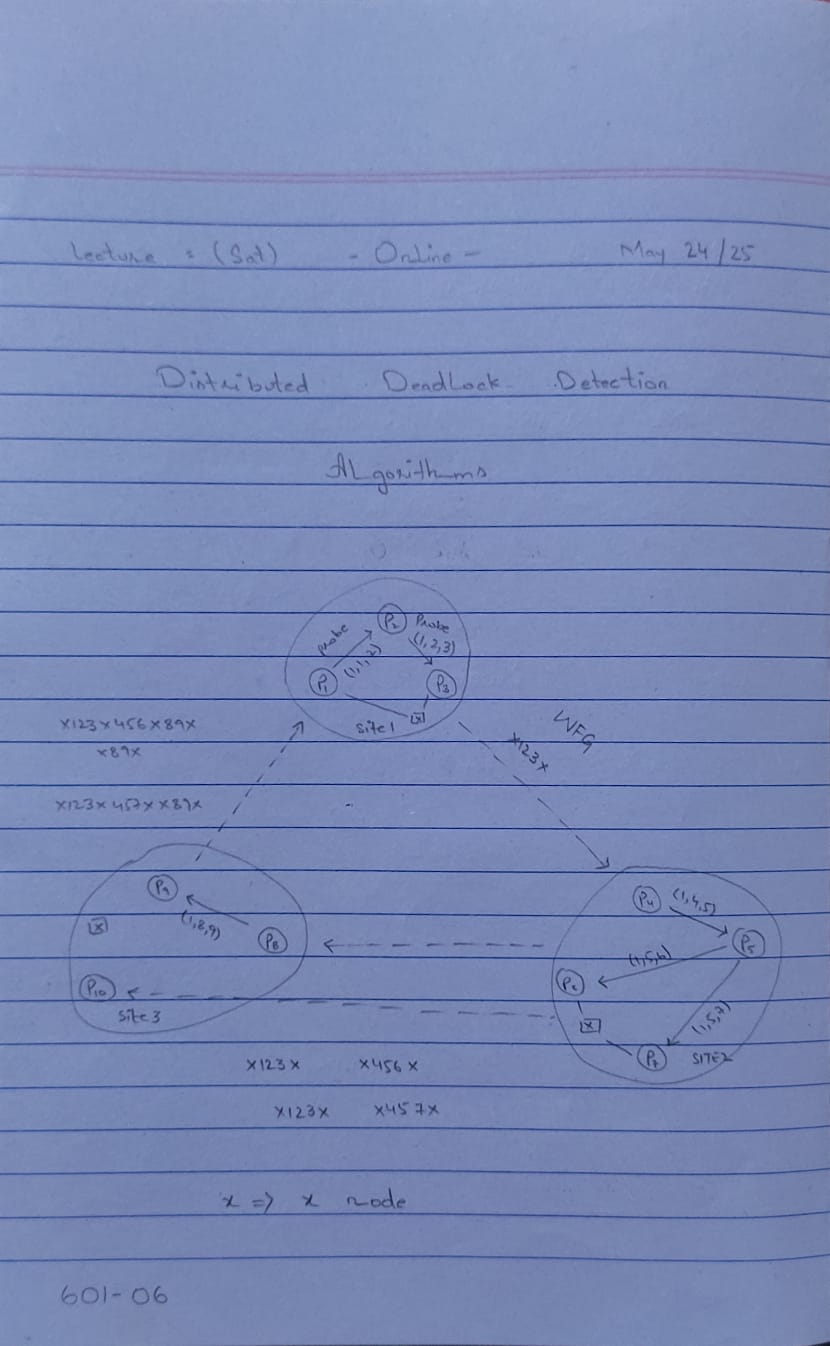 Lecture : (Sat) - Online - May 24/25
Distributed DeadLock Detection
ALgorithms
P2 Probe
Probe (1,2,3)
(1,1,2)
P1 P3
x
Site 1
WFG
x123x
x123x456x89x
x89x
x123x457xx89x
P9
(1,8,9)
x
P8
P10
Site 3
P4 (1,4,5)
P5
(1,5,6)
P6
x
(1,5,7)
P7 SITE2
x123x x456x
x123x x457x
x => x node
601-06